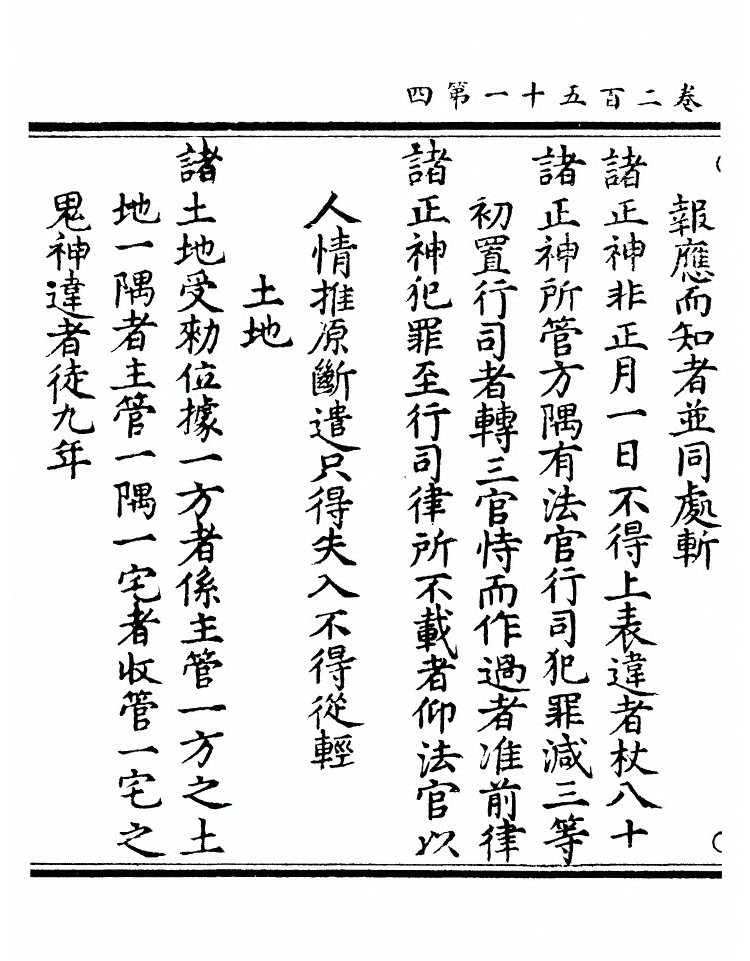 卷二百五十一第四
報應而知者並同處斬
諸正神非正月一日不得上表違者杖八十
諸正神所管方隅有法官行司犯罪減三等
初置行司者轉三官恃而作過者准前律
諸正神犯罪至行司律所不載者仰法官以
人情推原斷遣只得失入不得從輕
土地
諸土地受勑位據一方者係主管一方之土
地一隅者主管一隅一宅者收管一宅之
鬼神違者徒九年